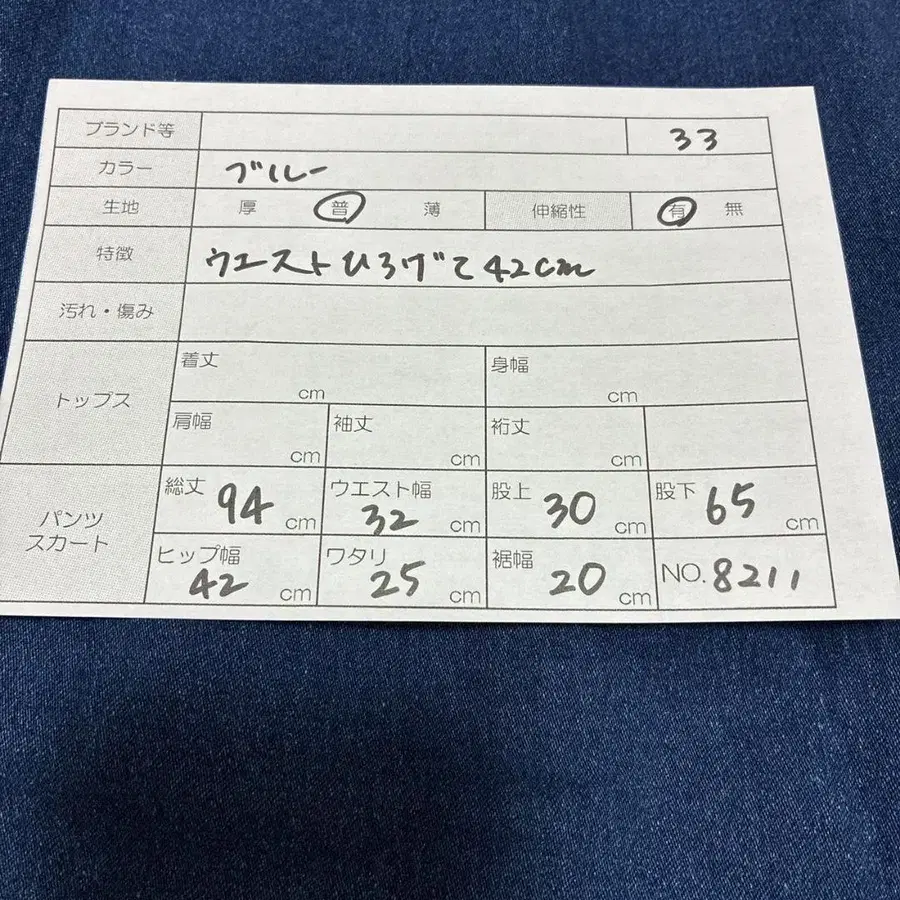 ブランド等 33
カラー ブルー
生地 厚 普 薄 伸縮性 有 無
特徴 ウエストひろげて42cm
汚れ・傷み
トップス
着丈 cm 身幅 cm
肩幅 cm 袖丈 cm 裄丈 cm
パンツ
スカート
総丈 94 cm ウエスト幅 32 cm 股上 30 cm 股下 65 cm
ヒップ幅 42 cm ワタリ 25 cm 裾幅 20 cm NO. 8211